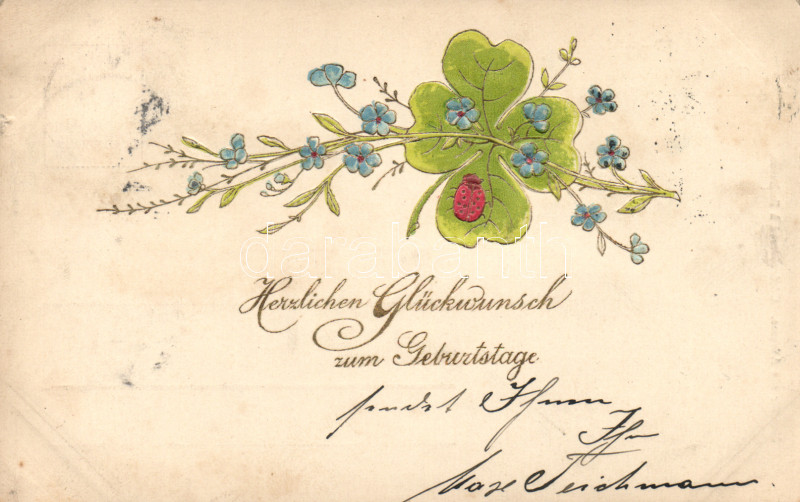 Herzlichen Glückwunsch
zum Geburtstage
sendet Ihnen
Ihr
Max Teichmann.
darabanth